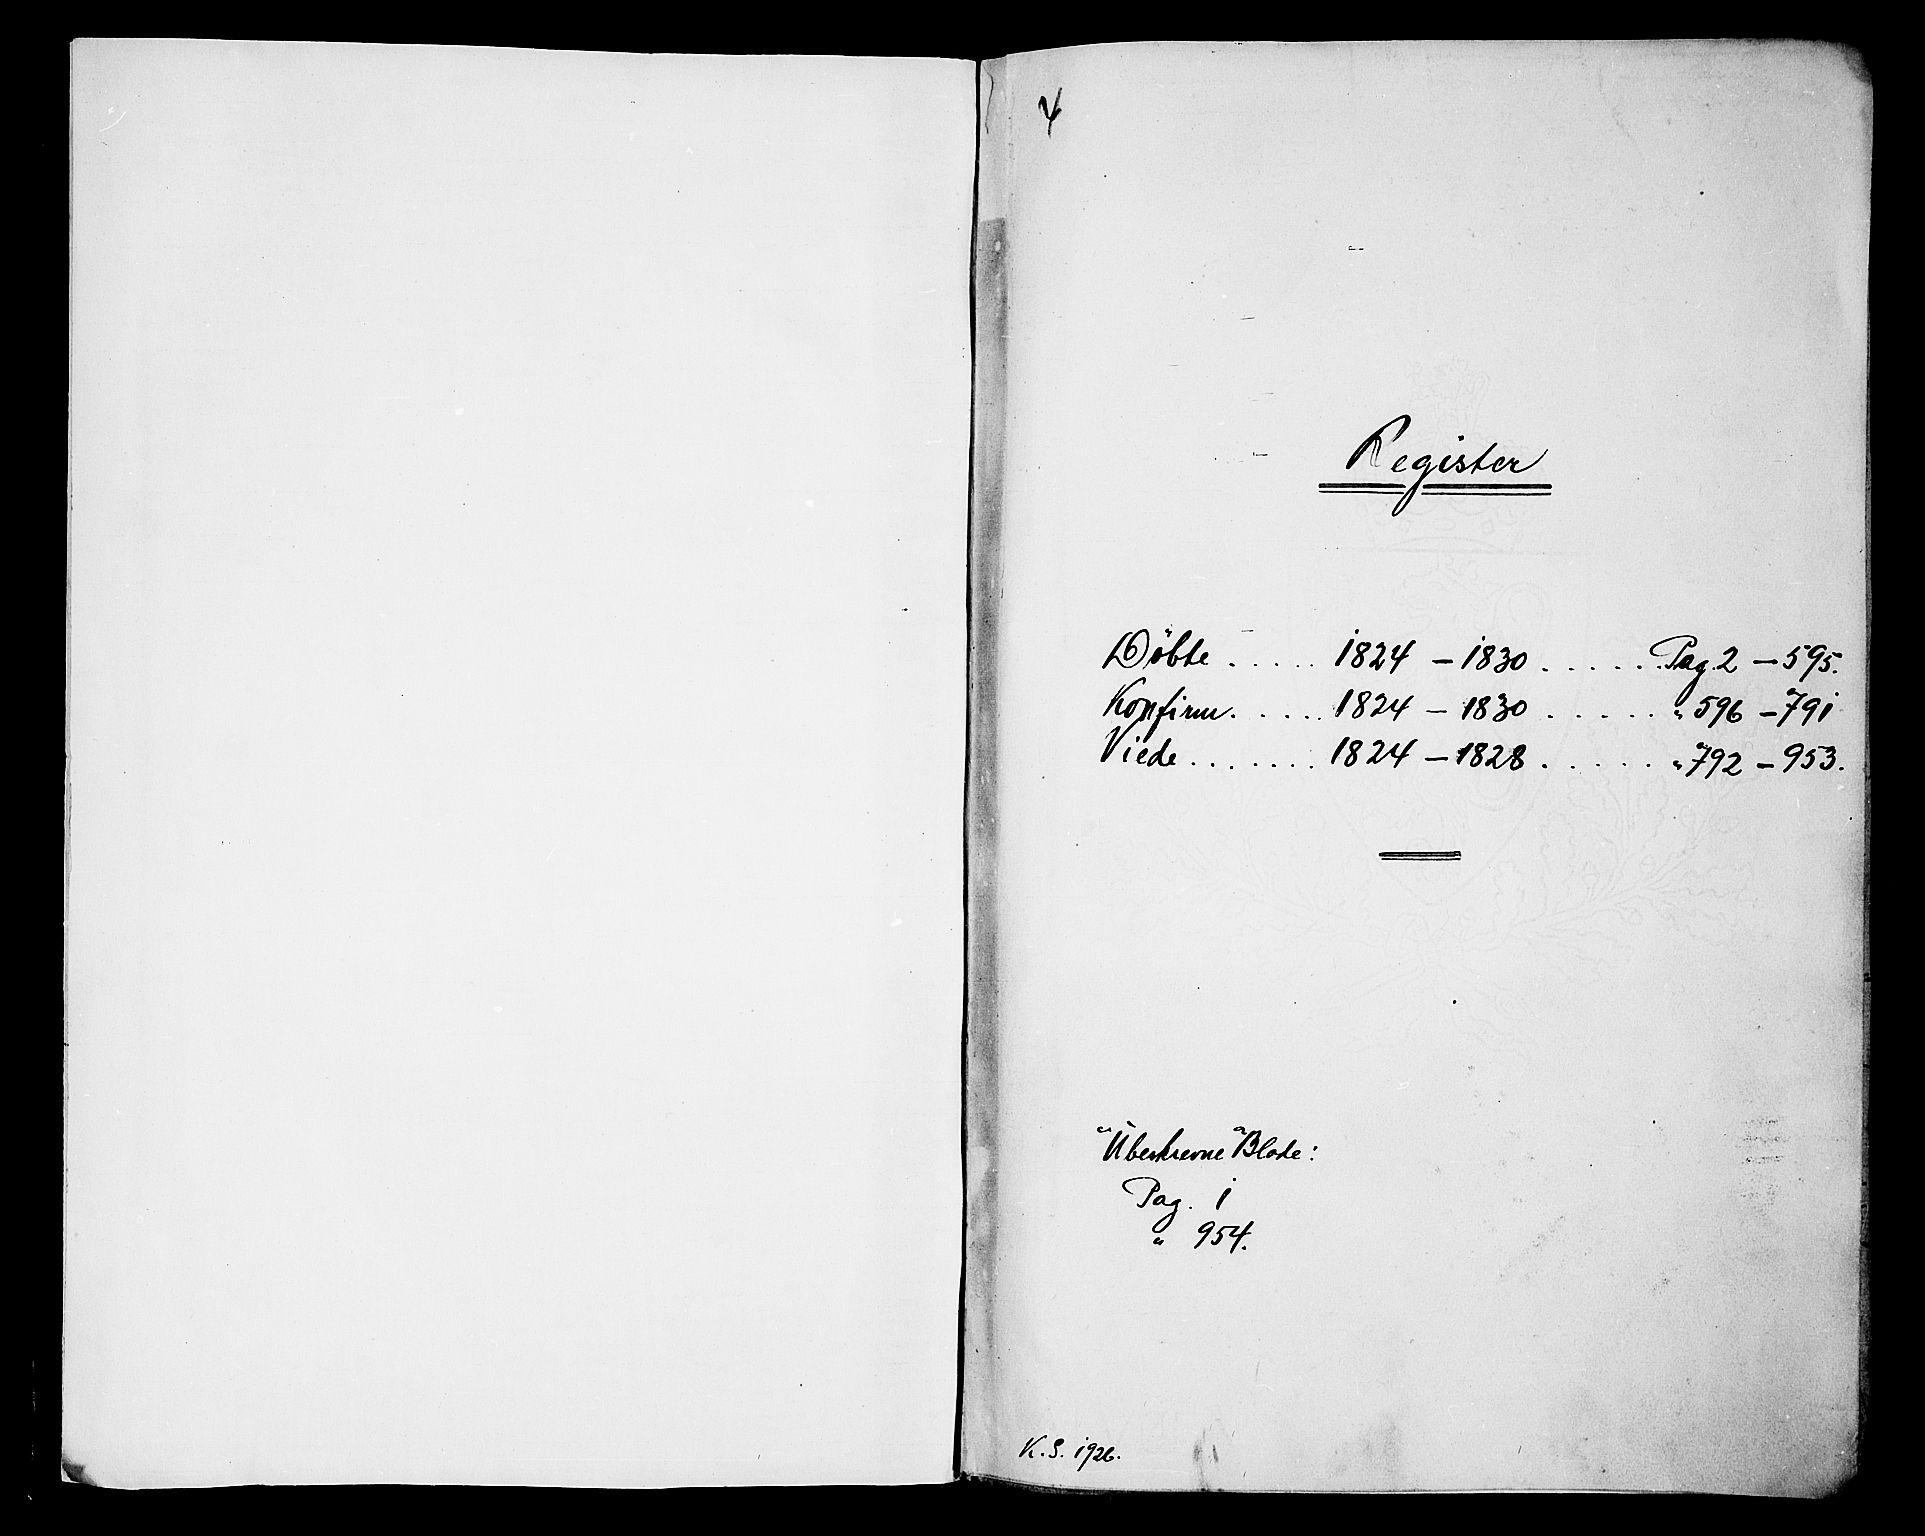 4
Register
Döbte ..... 1824 – 1830 ...... Pag. 2 – 595.
Konfirm. .... 1824 – 1830 ...... " 596 – 791
Viede ....... 1824 – 1828 ...... " 792 – 953.
Ubeskrevne Blade:
Pag. 1
" 954.
K.S. 1926.